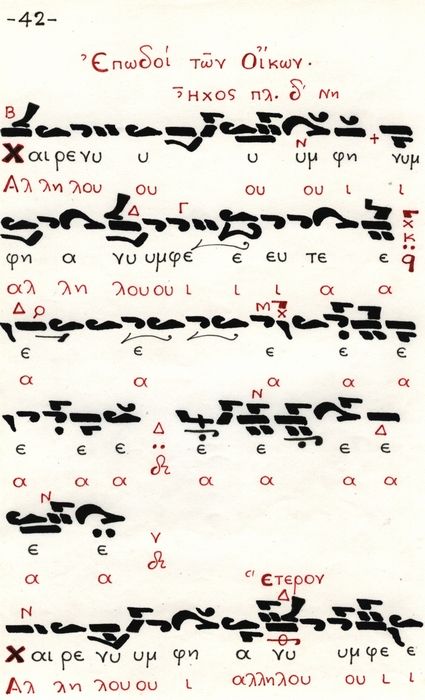 -42-
Ἐπωδοί τῶν Οἴκων.
Ἦχος πλ. δ΄ Νη
Χαι ρε νυ υ υ υμ φη νυμ
Αλ λη λου ου ου ου ι ι
φη α νυ υμ φε ε ευ τε ε
αλ λη λου ου ι ι ι α α
ε ε ε ε ε
α α α α α
ε ε ε ε ε ε ε
α α α α α α α
ε ε
α α
Ετερον
Χαι ρε νυ υμ φη α νυ υμ φε ε
Αλ λη λου ου ι αλληλου ου ι ι